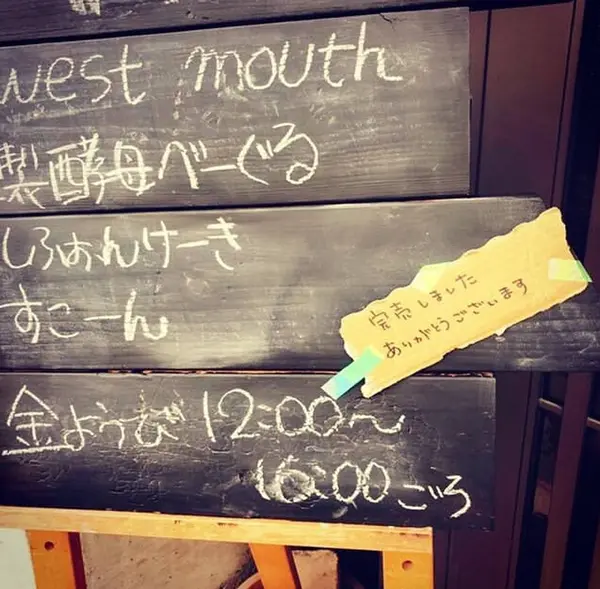 west mouth
製酵母べーぐる
しふぉんけーき
すこーん
完売しました
ありがとうございます
金ようび 12:00〜
16:00ごろ